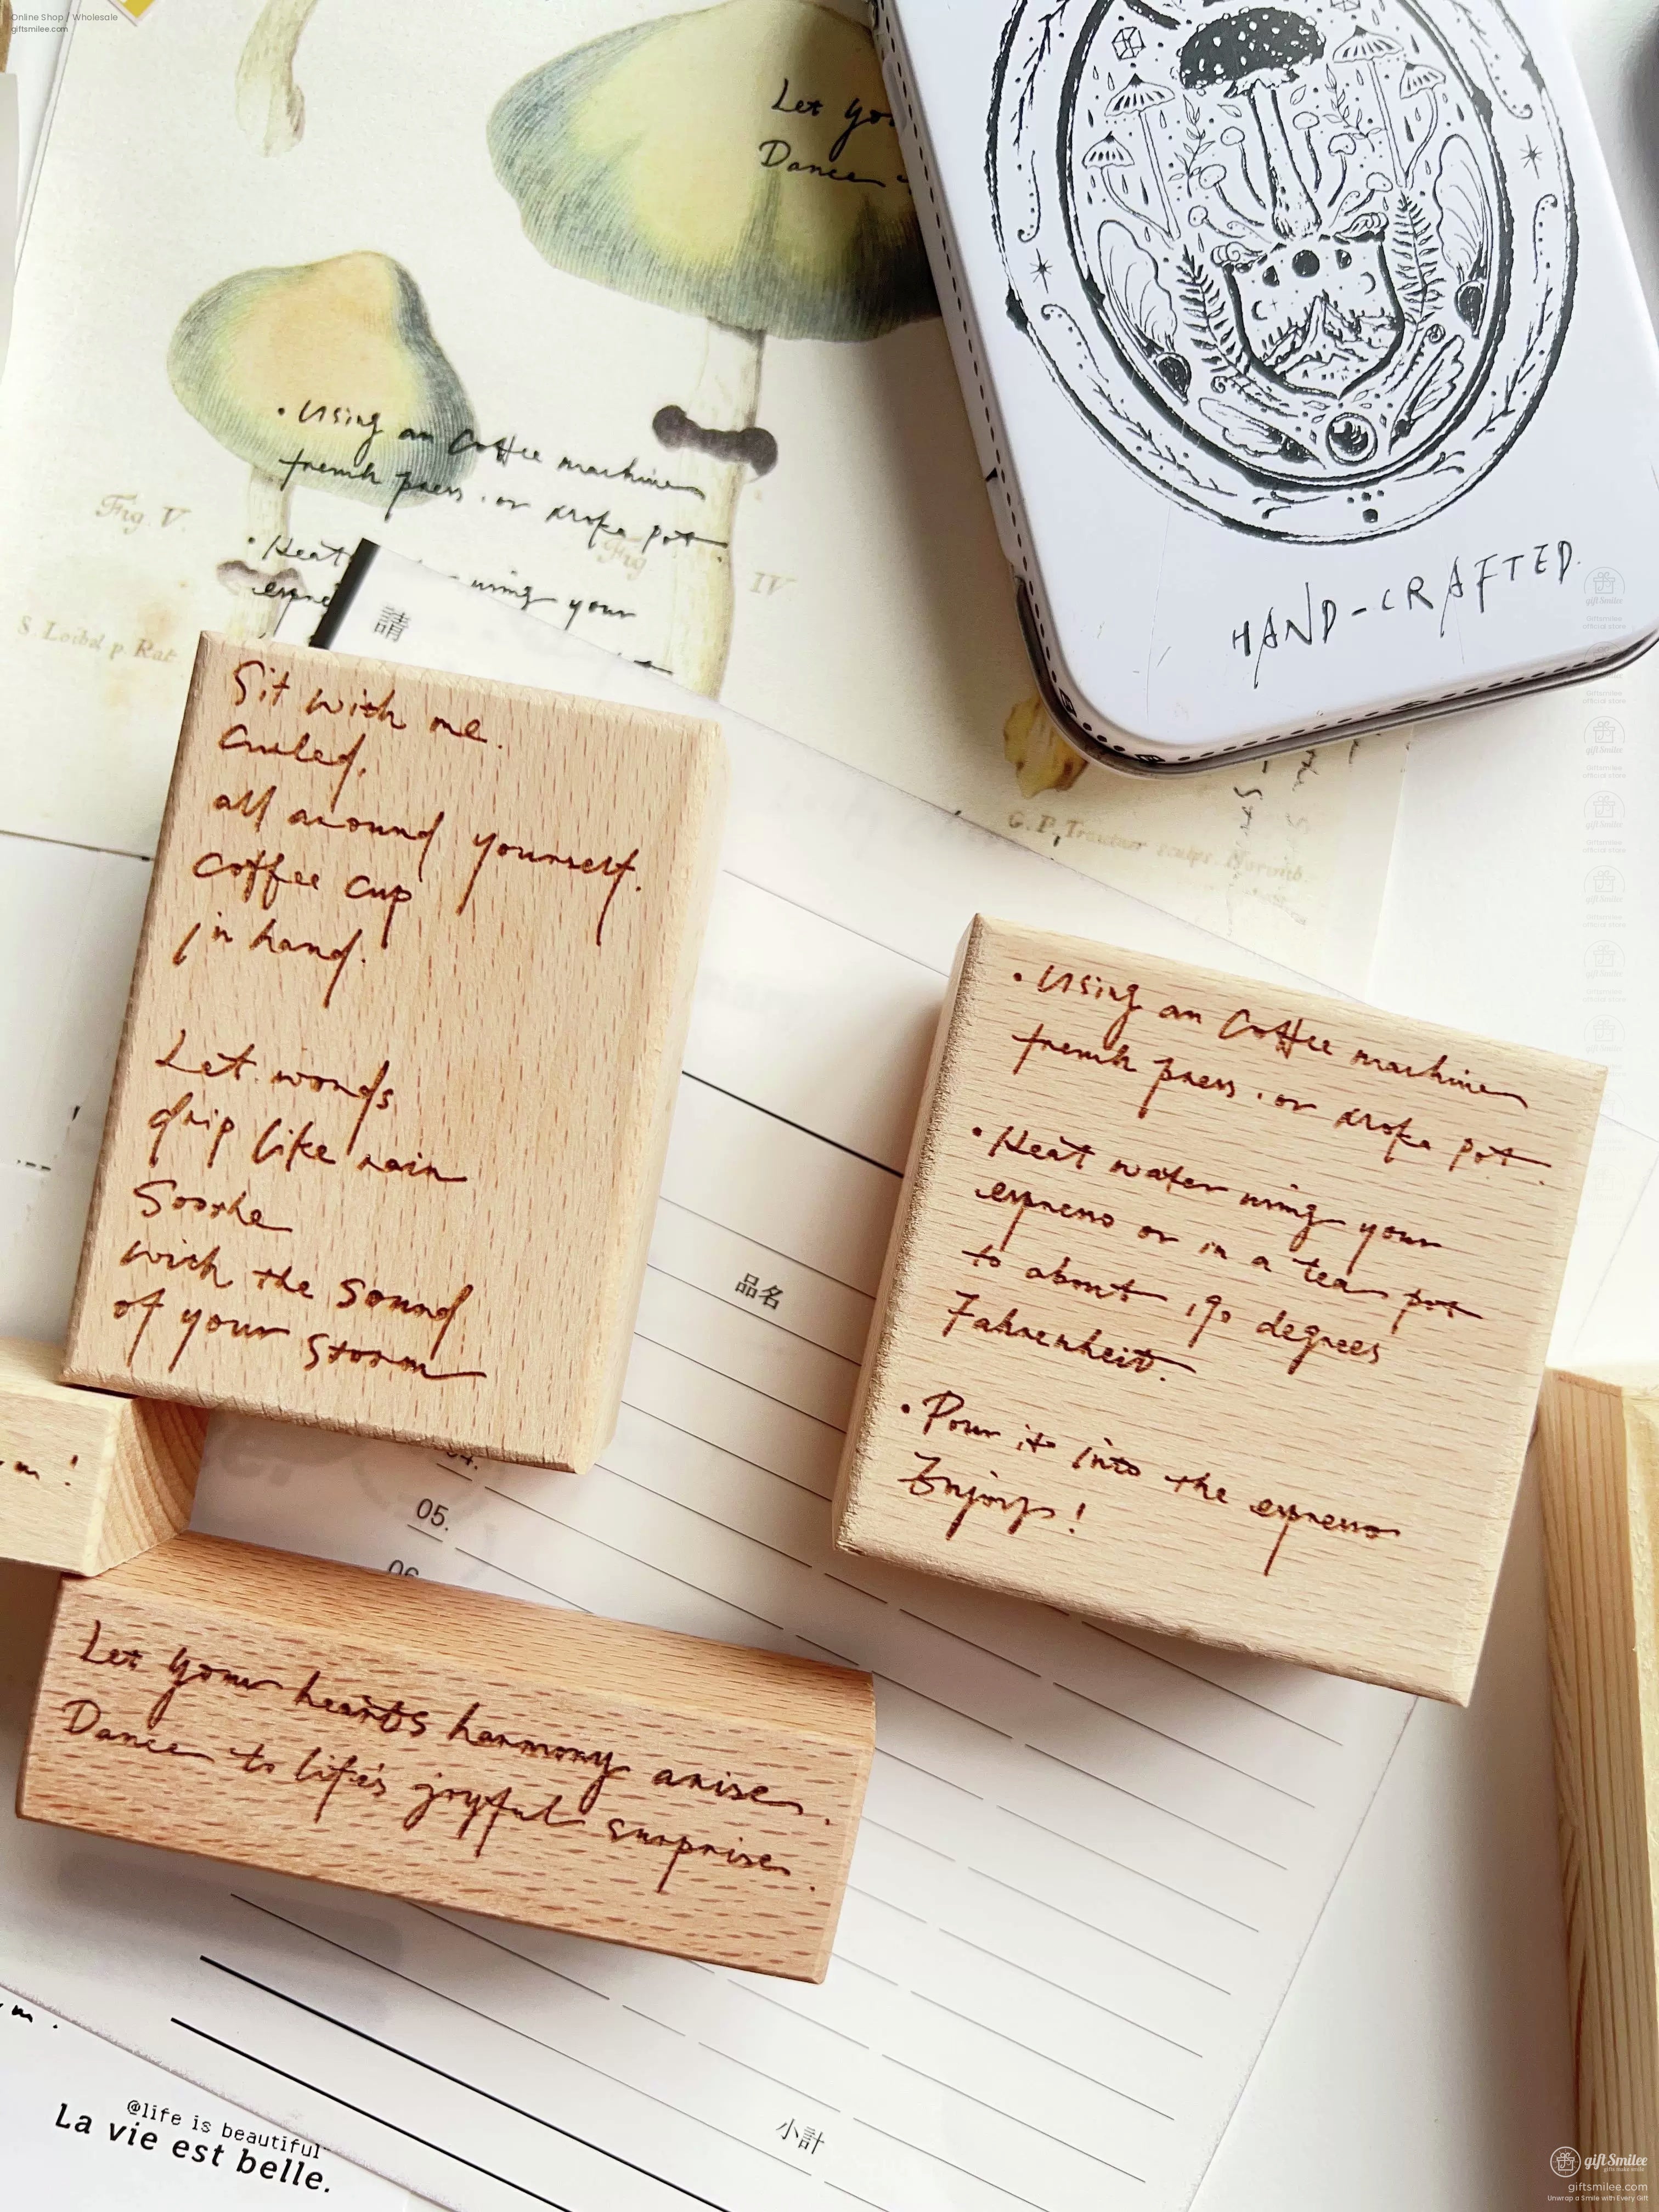 Online Shop / Wholesale
giftsmilee.com
Let you
Dance
• Using an Coffee machine
french press . or moka pot.
• Heat using your
espre
Fig. V.
Fig IV
S. Loibel p. Rat
請
HAND-CRAFTED.
G. P. Trautner sculps. Norimb.
Sit with me.
Curled.
all around yourself.
Coffee cup
in hand.
Let words
drip like rain
Soothe
with the Sound
of your Storm
• Using an Coffee machine
french press . or moka pot.
• Heat water using your
espresso or in a tea pot
to about 190 degrees
Fahrenheit.
• Pour it into the espresso
Enjoys!
品名
04.
05.
06
m !
Let your hearts harmony arise.
Dance to life's joyful surprise.
m.
@life is beautiful
La vie est belle.
小計
gift Smilee
gifts make smile
giftsmilee.com
Unwrap a Smile with Every Gift